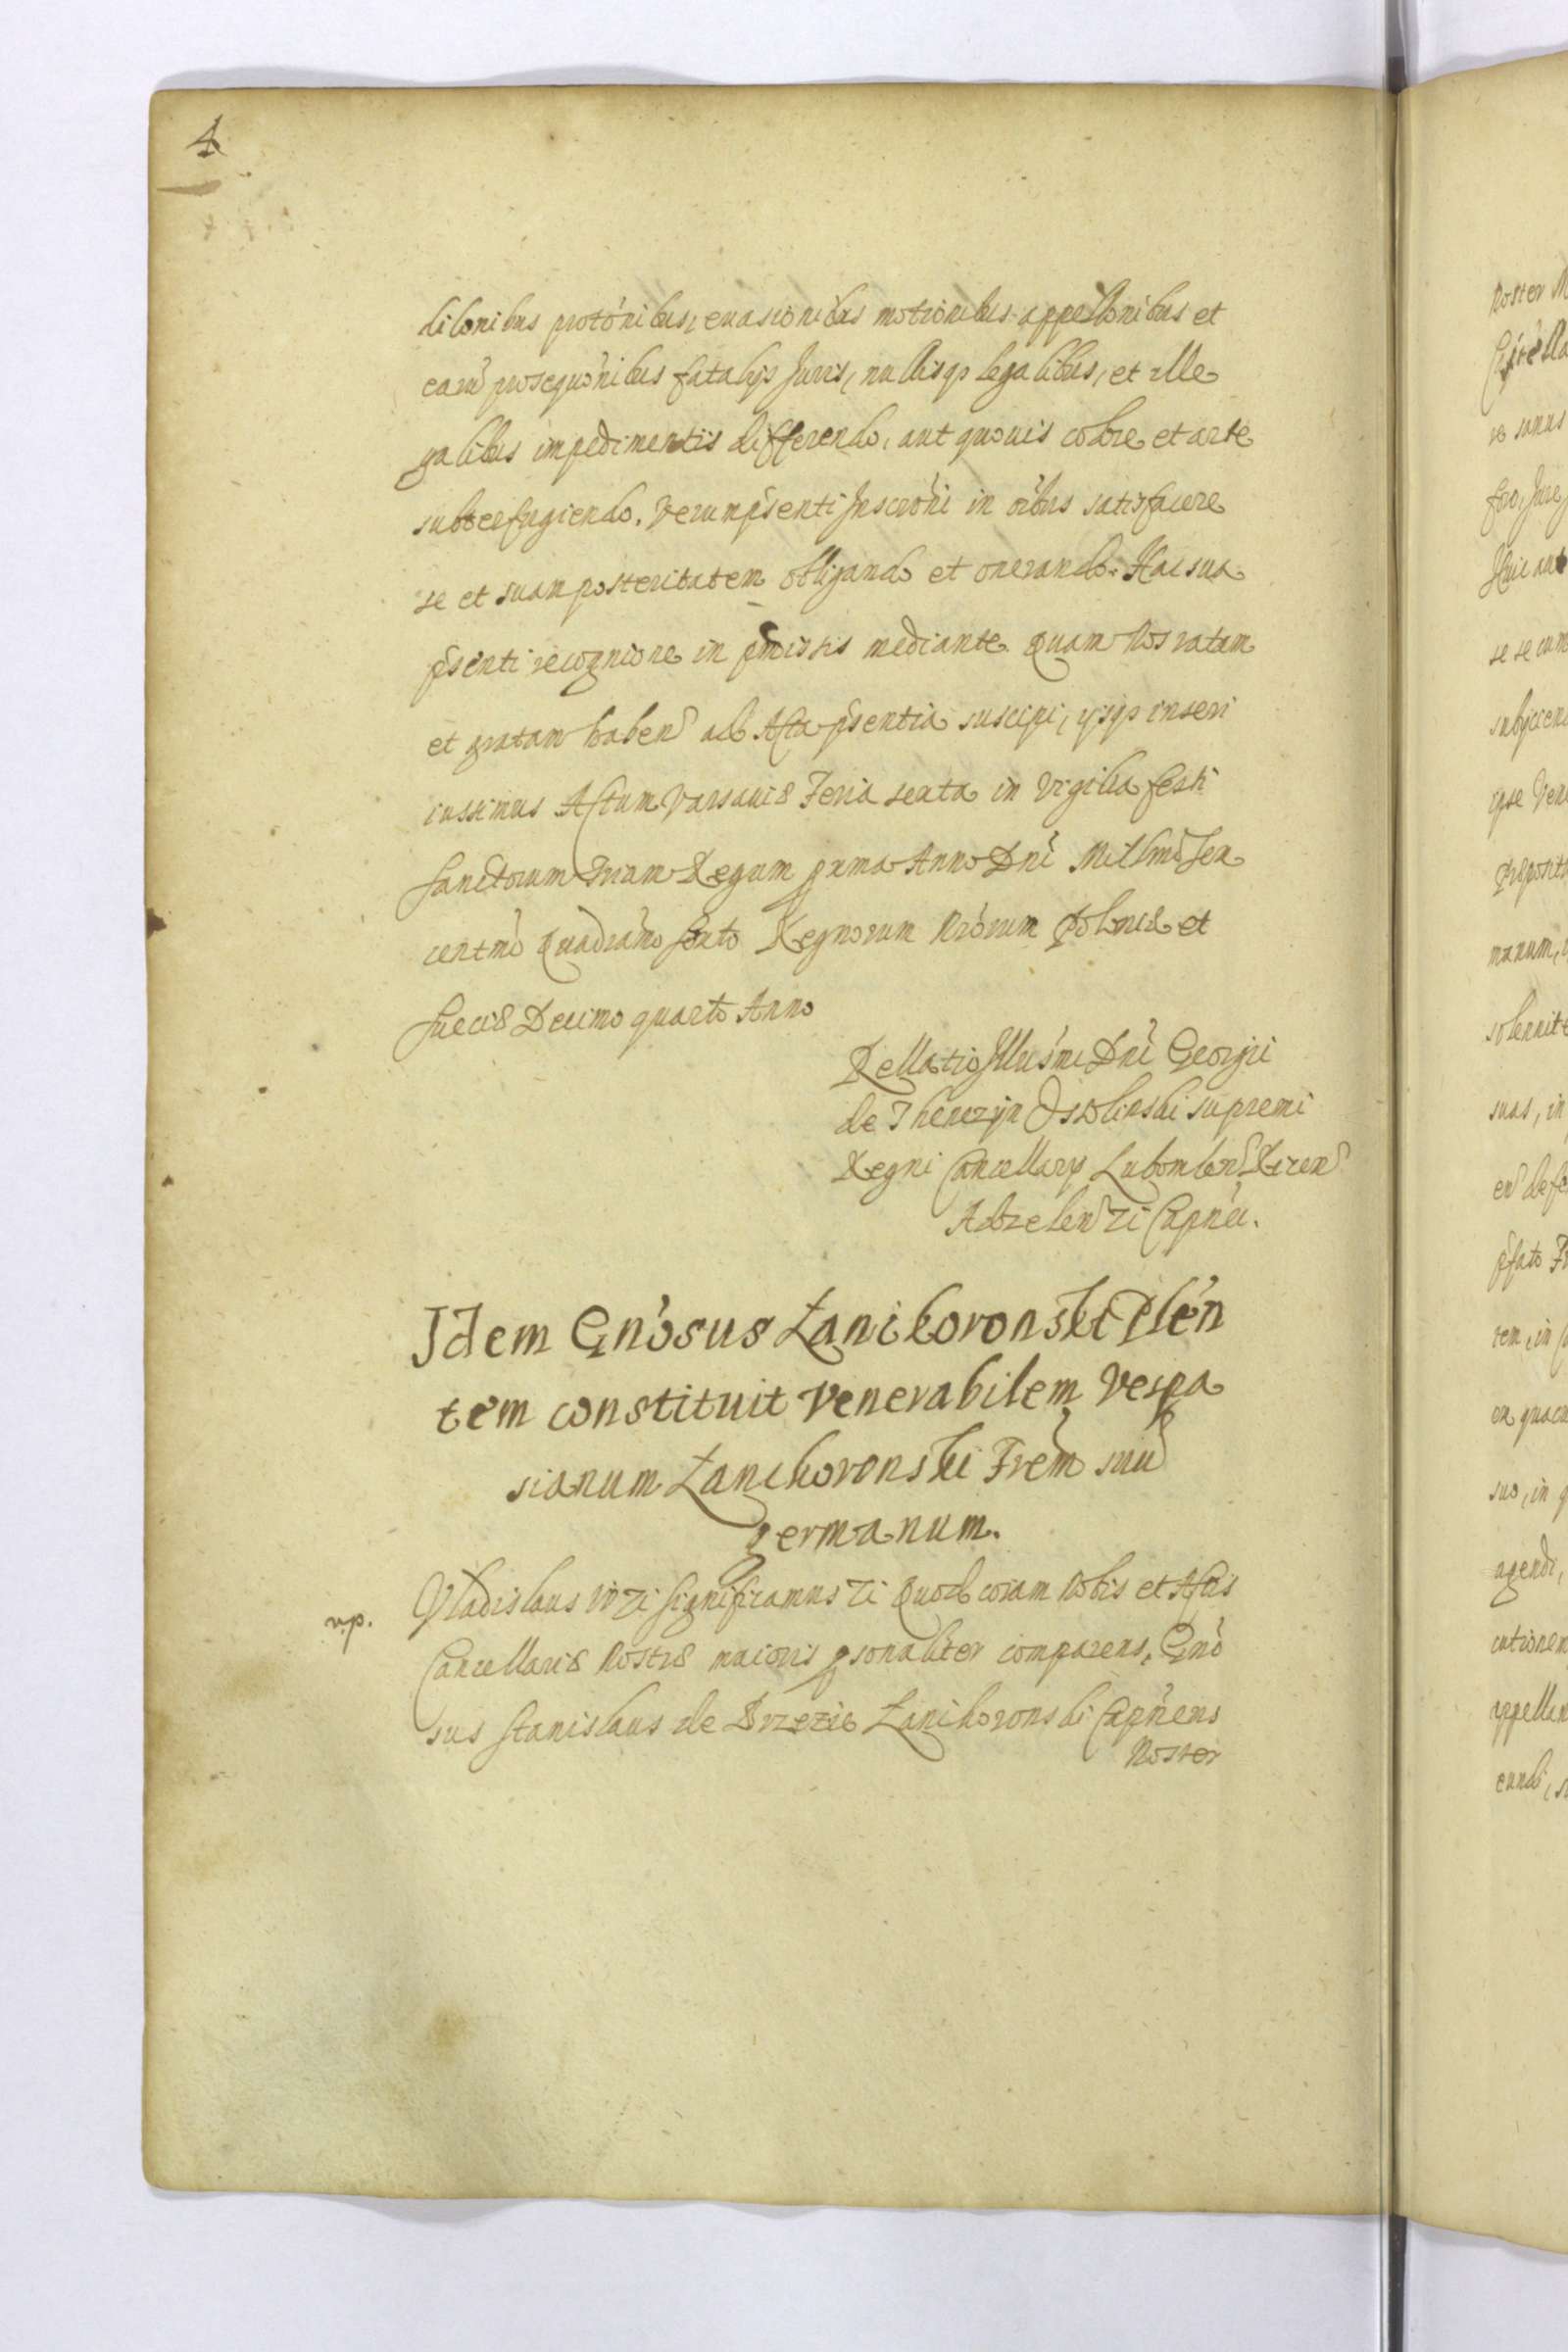 4
dilonibus protonibus, evasionibus motionibus appellonibus et
earũ prosequonibus fatalijs Juris, nullisqs legalibus, et ille
galibus impedimentis differendo, aut quouis colore et arte
subterfugiendo. Verum pñsenti Inscroni in oibus satisfacere
se et suam posteritatem obligando et onerando. Hac sua
pñsenti recognicione in pmissis mediante. Quam Nos ratam
et gratam haben ad Acta pñsentia suscipi, ijsqs inseri
iussimus Actum Varsauiæ Feria sexta in Vigilia festi
Sanctorum Trium Regum prima Anno Dni Millmo Sex
centmo Quadrãmo sexto Regnorum Nrorum Poloniæ et
Sueciæ Decimo quarto Anno
Rellatio Illusmi Dni Georgii
de Thenczyn Ossolinski supremi
Regni Cancellarij Lubomlen
Adzelen zc Capnei.
Idem Gnosus Lanckoronski Plen
tem constituit Venerabilem Vespa
sianum Lanckoronski Frem suũ
germanum.
v.p.
Vladislaus IV zc significamus zc Quod coram Nobis et Actis
Cancellariæ Nostræ maioris psonaliter comparens, Gno
sus Stanislaus de Brzezie Lanckoronski Capnens
Noster
Noster
se sanus
foro, Jure
Huic ant
se se cum
subjicien
ipse Vene
manum,
solennit
suas, in
pfato Fr
rem, in
ex quacu
suo, in
agendi,
cutionem
appellan